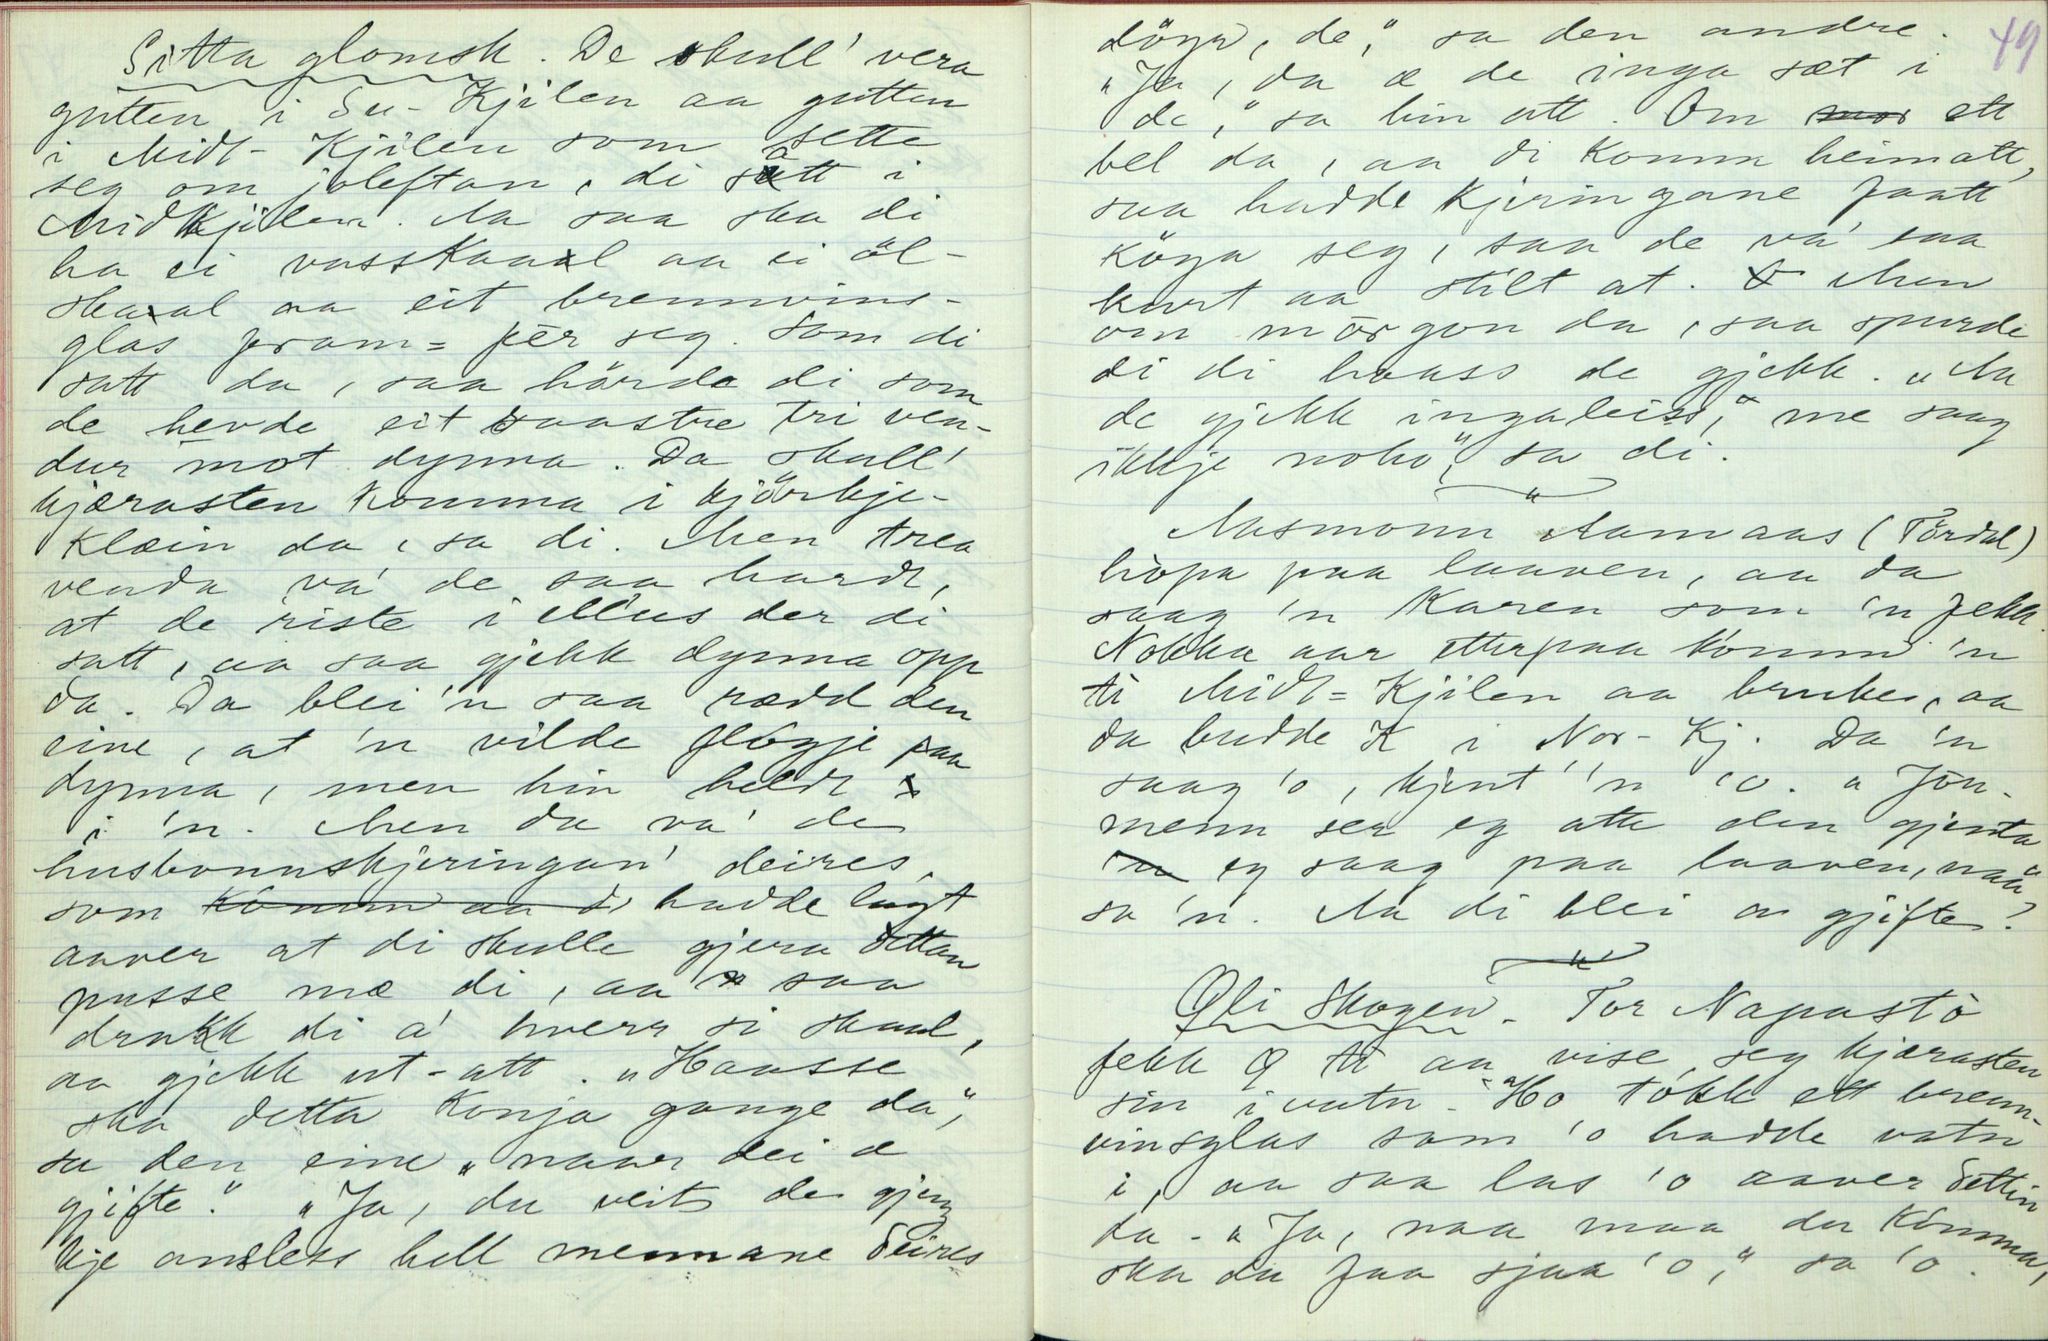 Sitta glomsk. De skull' vera
gutten i Su-Kjilen aa gutten
i Midt-Kjilen som sette
seg om joleftan, di satt i
Midtkjilen. Aa saa ska di
ha ei vasskaal aa ei öl-
skaal aa eit brennvins-
glas fram-fér seg. Som di
satt da, saa hörde di som
de hevde eit raastre tri ven-
dur mot dynna. Da skull'
kjærasten komma i kjörkje-
klæin da, sa di. Men trea
venda va' de saa hardt,
at de riste i Mus der di
satt, aa saa gjekk dynna opp
da. Da blei 'n saa rædd den
eine, at 'n vilde flögje paa
dynna, men hin heldt
i 'n. Men da va' de
husbonnskjeringan' deires,
som komm aa di hadde lagt
aaver at di skulle gjera dettan
pusse mæ di, aa saa
drakk di á hverr si skaal,
aa gjekk ut-att. "Haasse
ska detta konja gange da",
sa den eine, "naar dei æ
gjifte." "Ja, du veit de gjeng
kje ansless hell mennane deires
döya, de," sa den andre.
"Ja, da æ de inga sæt i
de," sa hin att. Om ett
bel da, aa di komm heimatt,
saa hadde kjeringane faatt
köya seg, saa de va' saa
kurt aa stilt at. Men
om mörgon da, saa spurde
di di haass de gjekk. "Aa
de gjekk ingaleiss, me saag
ikkje noko", sa di.
Aasmonn Aamaas (Tördal)
hopa paa laaven, aa da
saag 'n Karen som 'n fekk.
Nokka aar etterpaa komm 'n
ti Midt-Kjilen aa brukes, aa
da budde K i Nor-Kj. Da 'n
saag 'o, kjent' 'n 'o. "Jön-
menn ser eg atte den gjenta
eg saag paa laaven, naa",
sa 'n. Aa di blei gjifte.
49
Oli Skogen. Tor Napastö
fekk O ti aa vise seg kjærasten
sin i vatn. Ho tokk ett brenn-
vinsglas som 'o hadde vatn
i, aa saa las 'o aaver dettin
da. "Ja, naa maa du komma,
ska du faa sjaa 'o," sa 'o.